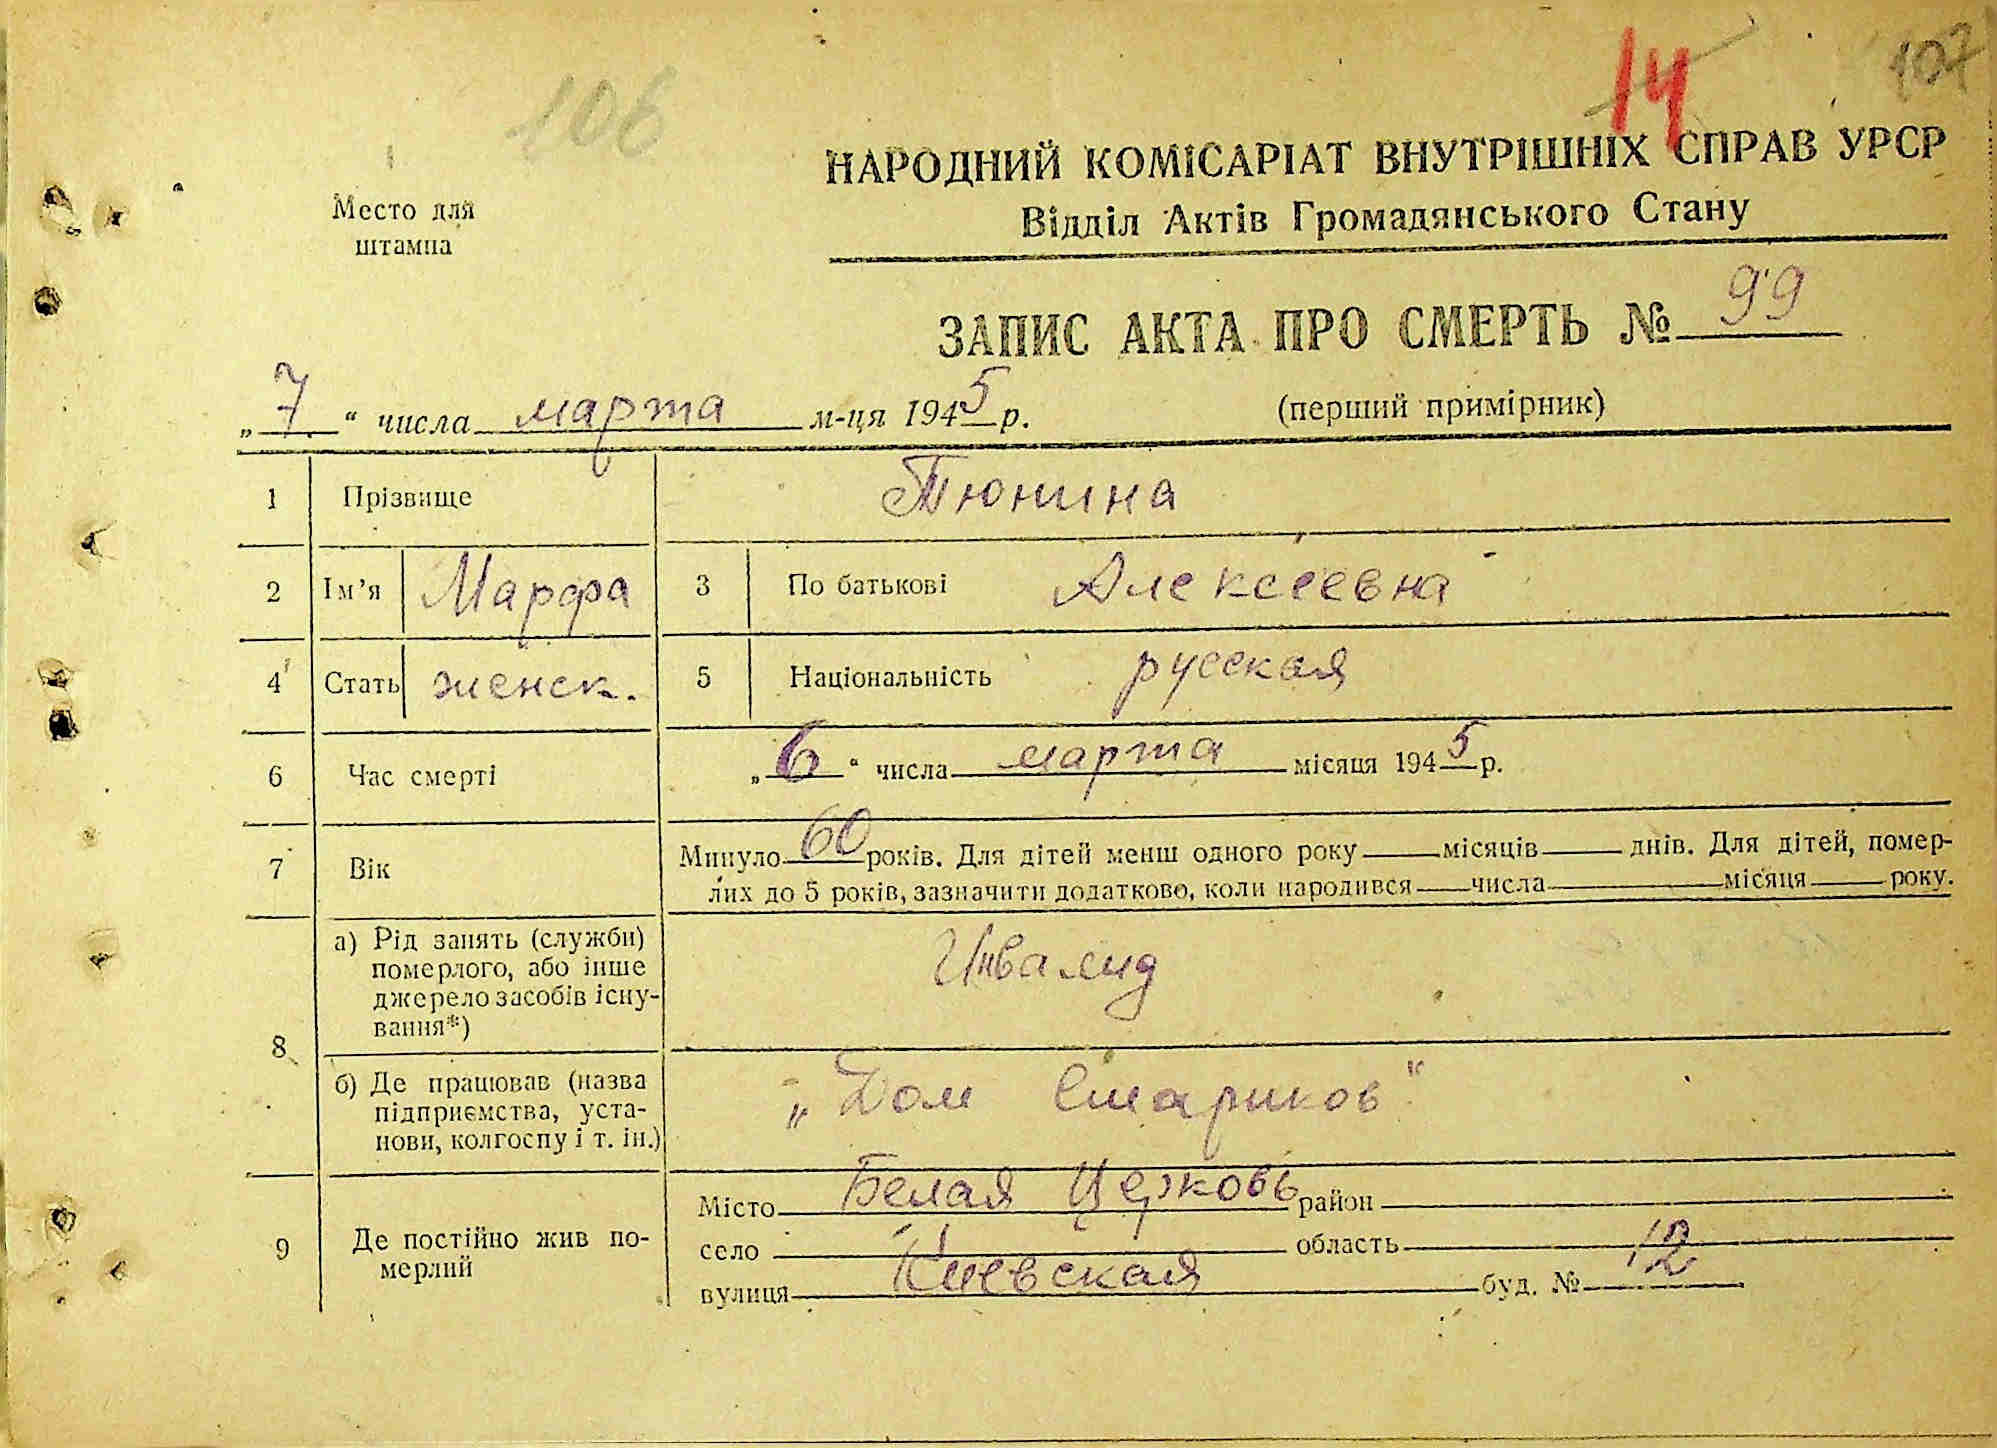 106
14
107
НАРОДНИЙ КОМІСАРІАТ ВНУТРІШНІХ СПРАВ УРСР
Відділ Актів Громадянського Стану
Место для
штампа
ЗАПИС АКТА ПРО СМЕРТЬ № 99
„7“ числа марта м-ця 1945 р.
(перший примірник)
1 Прізвище Тюнина
2 Ім’я Марфа 3 По батькові Алексеевна
4 Стать женск. 5 Національність русская
6 Час смерті „6“ числа марта місяця 1945 р.
7 Вік Минуло 60 років. Для дітей менш одного року — місяців — днів. Для дітей, помер-
лих до 5 років, зазначити додатково, коли народився — числа — місяця — року.
8 а) Рід занять (служби)
померлого, або інше
джерело засобів існу-
вання*)
Инвалид
б) Де працював (назва
підприємства, уста-
нови, колгоспу і т. ін.)
„Дом Стариков“
9 Де постійно жив по-
мерлий
Місто Белая Церковь район
село область
вулиця Киевская буд. № 12